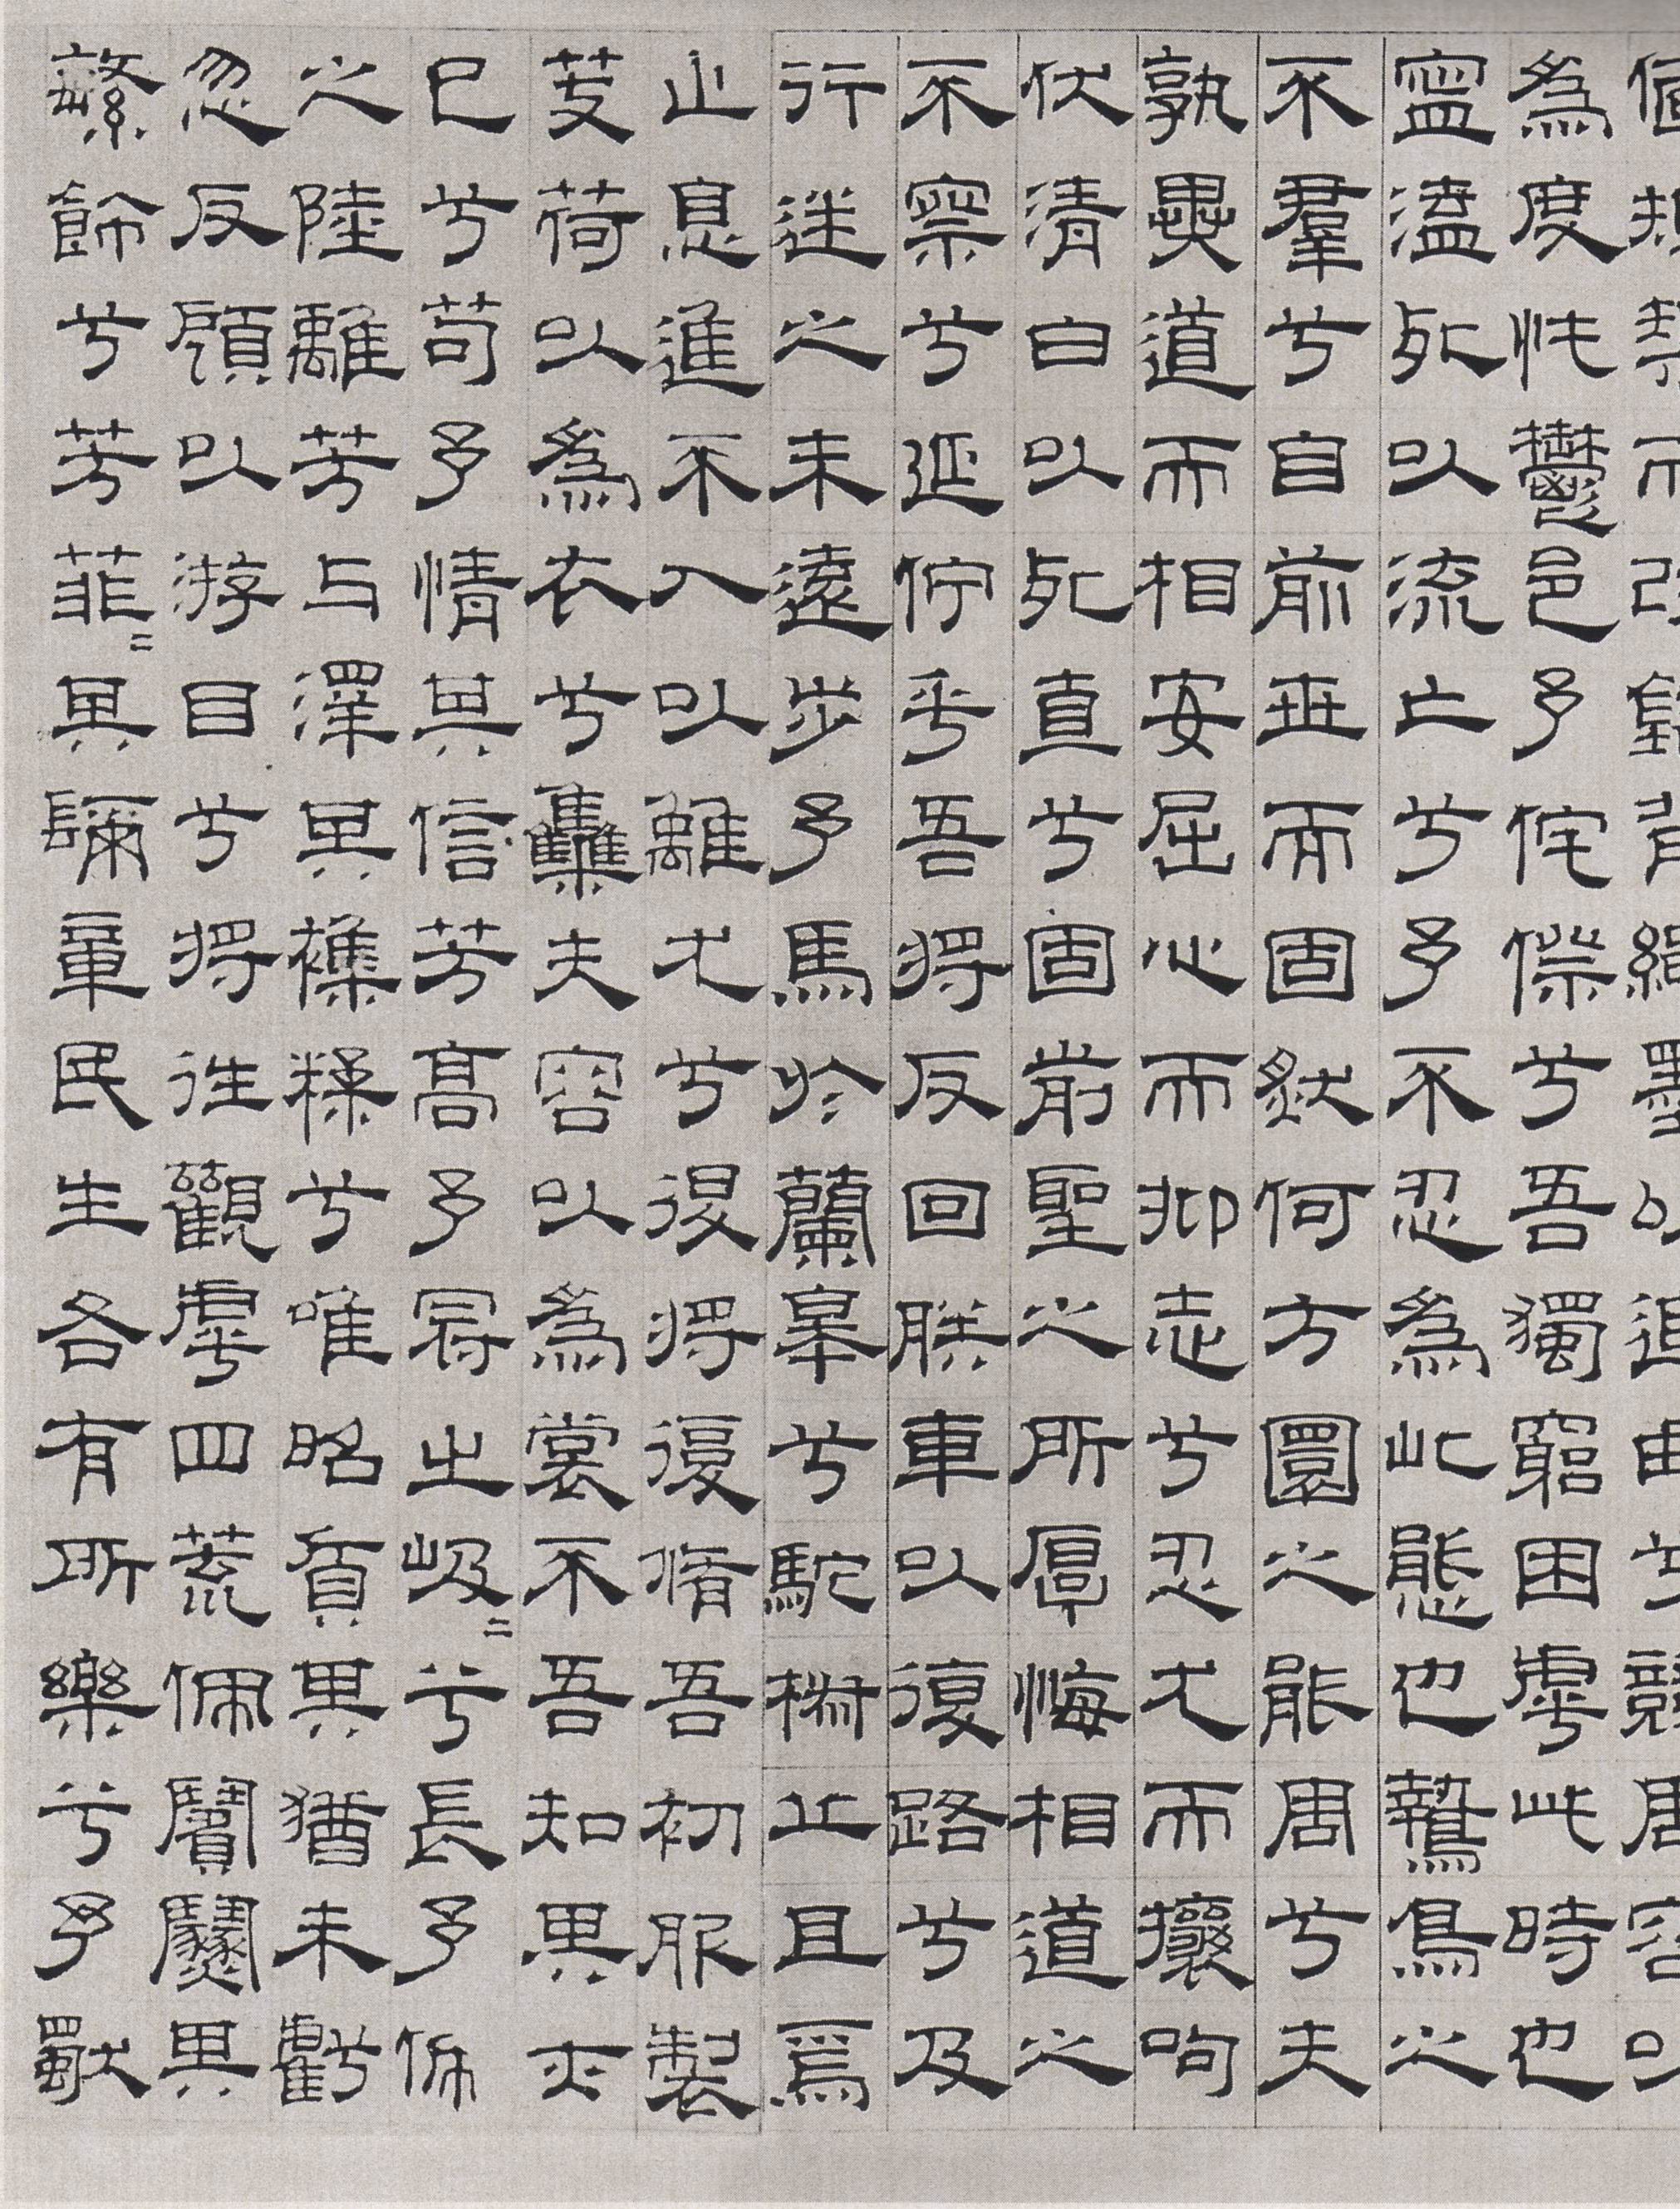 偭規榘而改錯背繩墨以追曲兮競周容以
為度忳鬱邑予侘傺兮吾獨窮困虖此時也
寧溘死以流亡兮予不忍為此態也鷙鳥之
不羣兮自前世而固然何方圜之能周兮夫
孰異道而相安屈心而抑志兮忍尤而攘呴
伏清白以死直兮固前聖之所厚悔相道之
不察兮延佇乎吾將反回朕車以復路兮及
行迷之未遠步予馬於蘭皋兮馳椒丘且焉
止息進不入以離尤兮退將復脩吾初服製
芰荷以為衣兮雧夫容以為裳不吾知其亦
已兮苟予情其信芳高予冠之岌=兮長予佩
之陸離芳与澤其襍糅兮唯昭質其猶未虧
忽反顧以游目兮將往觀虖四荒佩繽紛其
繁飾兮芳菲=其彌章民生各有所樂兮予獨